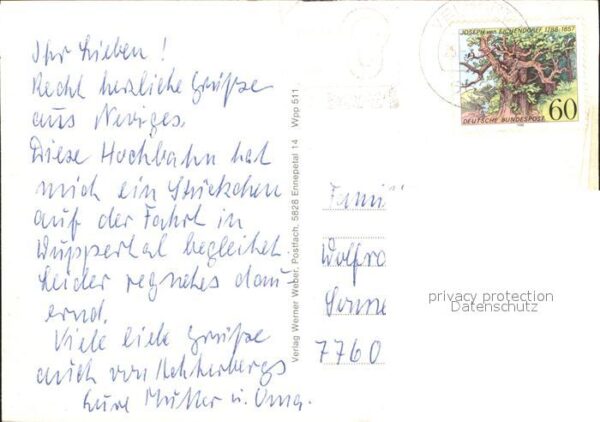 Ihr Lieben!
Recht herzliche Grüße
aus Neviges.
Diese Hochbahn hat
mich ein Stückchen
auf der Fahrt in
Wuppertal begleitet
Leider regnet es dau-
ernd.
Viele liebe Grüße
auch von
Eure Mutter u. Oma.
Verlag Werner Weber, Postfach, 5828 Ennepetal 14 Wpp 511
JOSEPH von EICHENDORFF 1788-1857
60
DEUTSCHE BUNDESPOST
Famil
Wolfra
Sonne
7760
privacy protection
Datenschutz